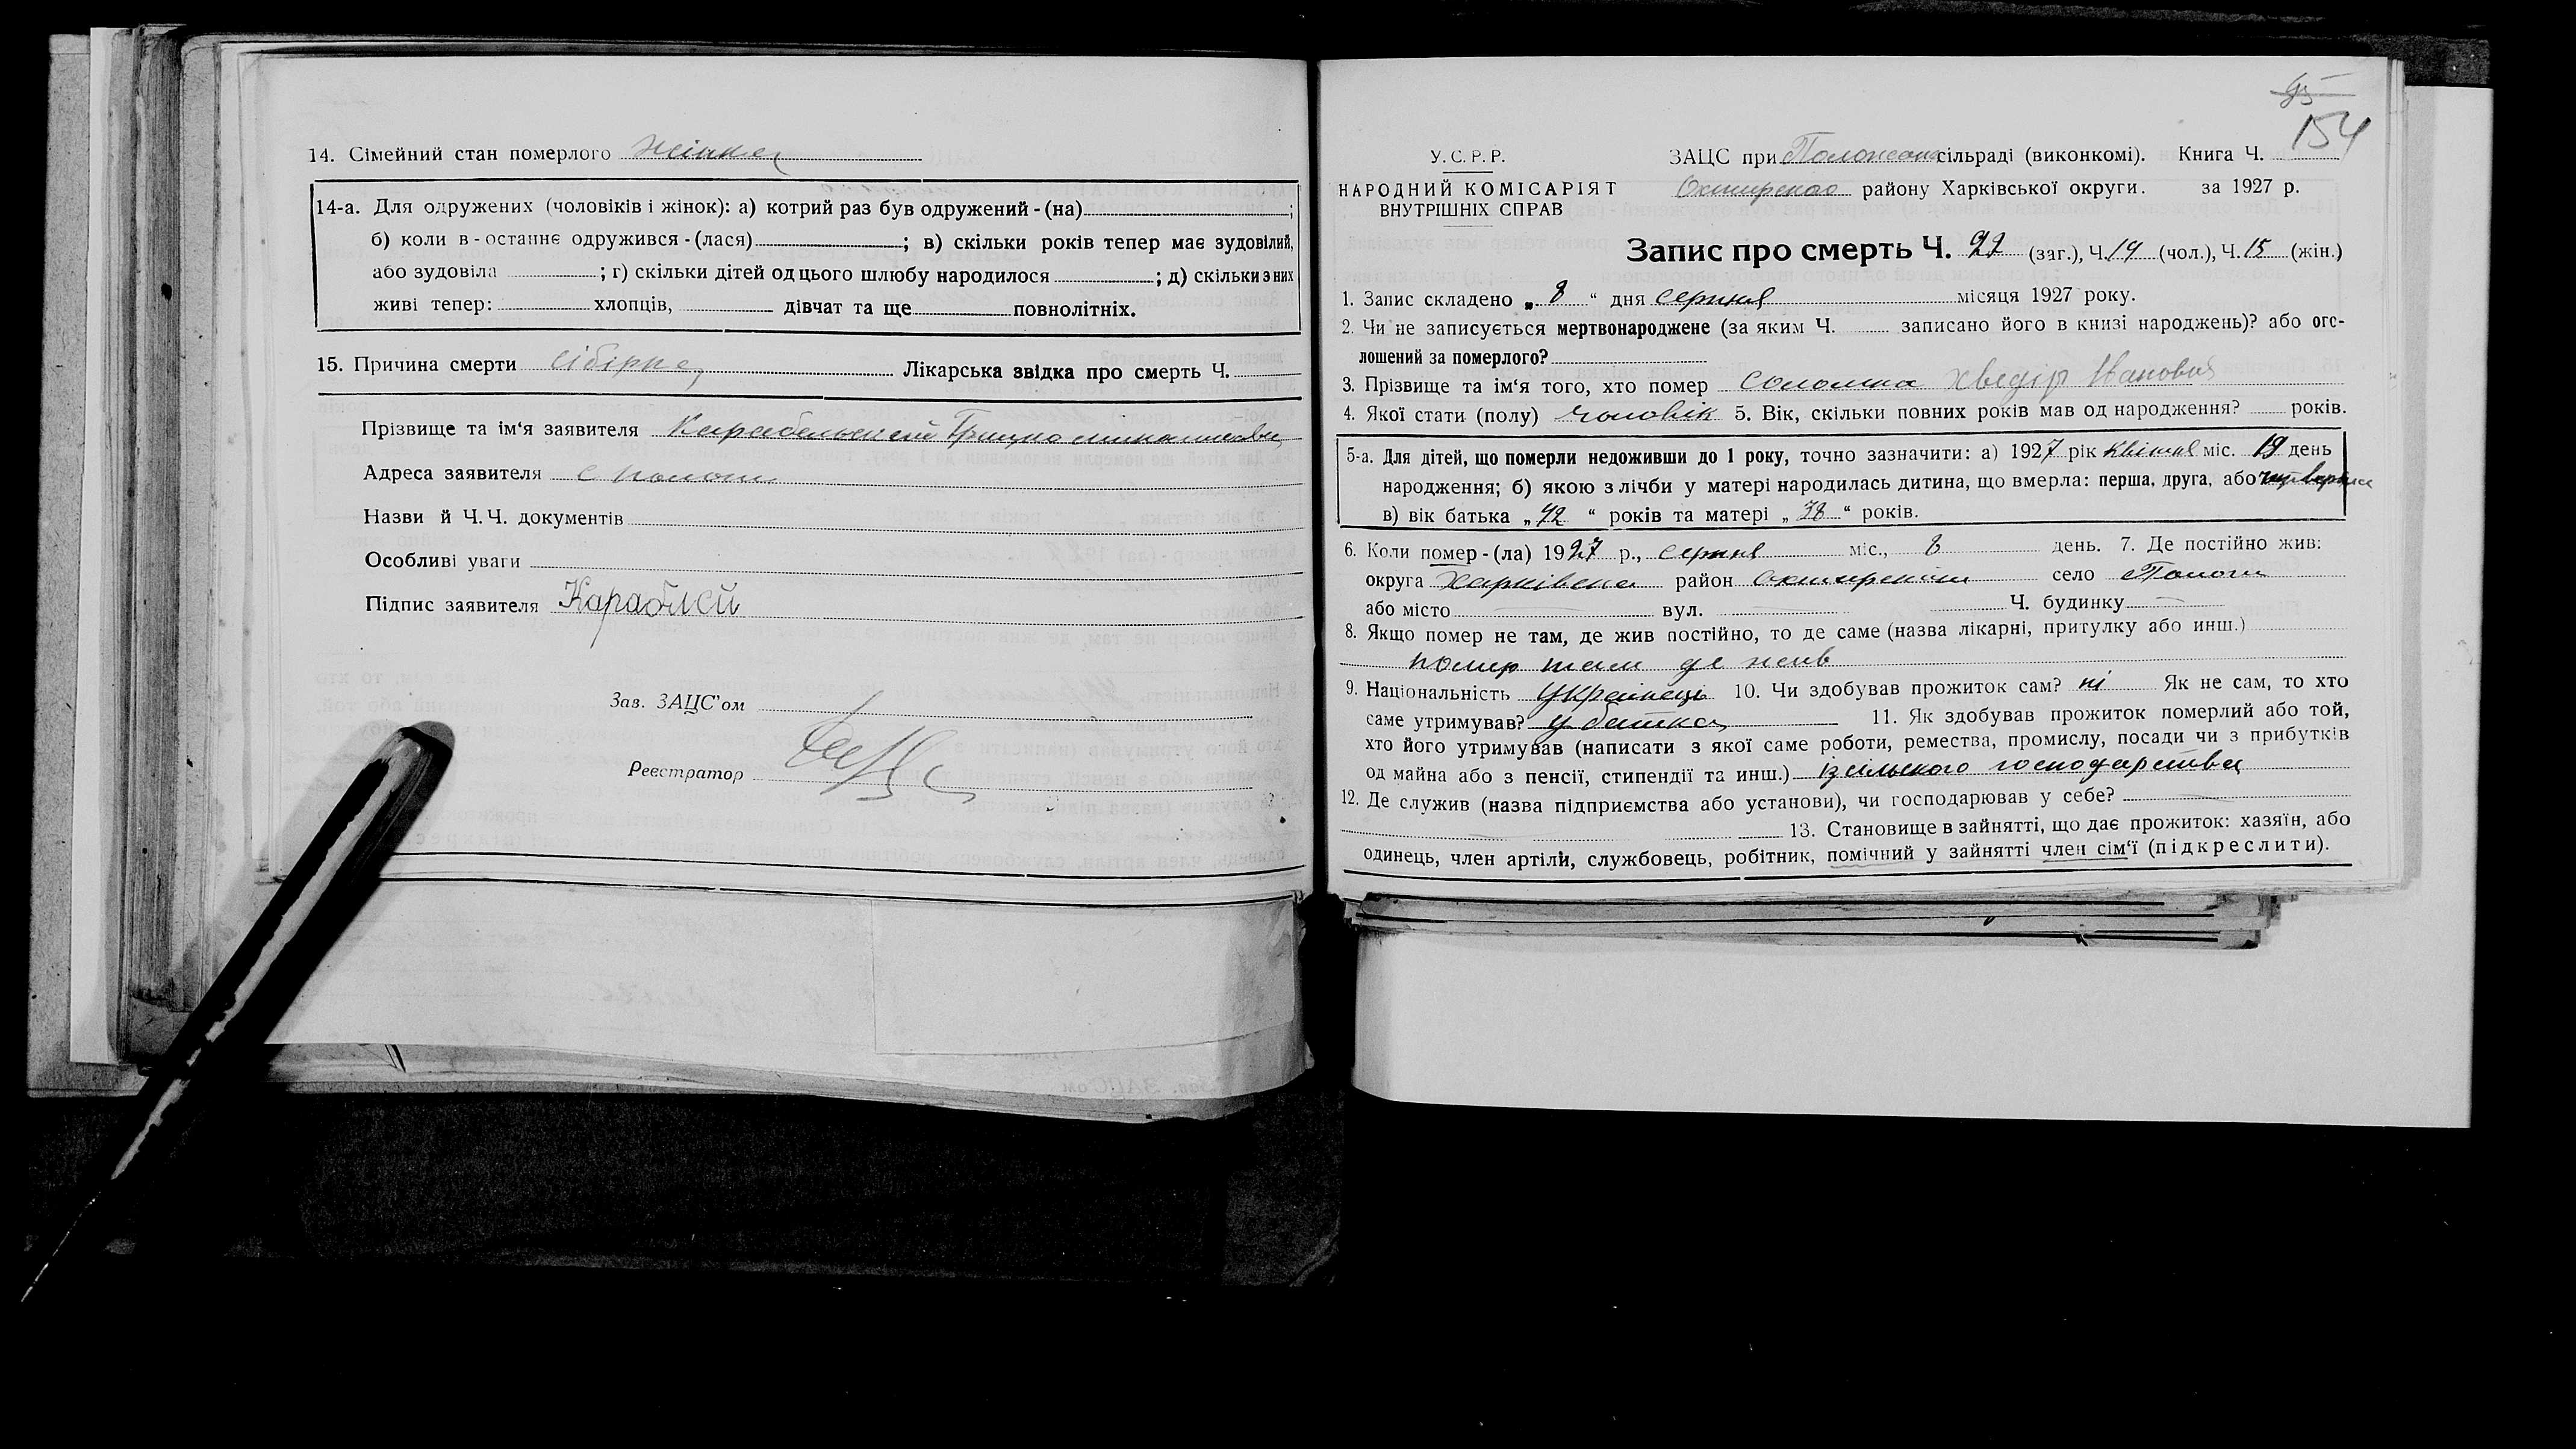 14. Сімейний стан померлого жінка
14-а. Для одружених (чоловіків і жінок): а) котрий раз був одружений - (на) ;
б) коли в - останнє одружився - (лася) ; в) скільки років тепер має зудовілий,
або зудовіла ; г) скільки дітей од цього шлюбу народилося ; д) скільки з них
живі тепер: хлопців, дівчат та ще повнолітніх.
15. Причина смерти сібірка Лікарська звідка про смерть Ч.
Прізвище та ім'я заявителя Грицко
Адреса заявителя с Полоти
Назви й Ч.Ч. документів
Особливі уваги
Підпис заявителя
Зав. ЗАЦС'ом
Реєстратор
95
154
У.С.Р.Р.
НАРОДНИЙ КОМІСАРІЯТ
ВНУТРІШНІХ СПРАВ
ЗАЦС при сільраді (виконкомі). Книга Ч.
району Харківської округи. за 1927 р.
Запис про смерть Ч. 22 (заг.), Ч. 14 (чол.), Ч. 15 (жін.)
1. Запис складено „ 8 “ дня серпня місяця 1927 року.
2. Чи не записується мертвонароджене (за яким Ч. записано його в книзі народжень)? або ого-
лошений за померлого?
3. Прізвище та ім'я того, хто помер Соломка Хведір Іванович
4. Якої стати (полу) чоловік 5. Вік, скільки повних років мав од народження? років.
5-а. Для дітей, що померли недоживши до 1 року, точно зазначити: а) 1927 рік квітня міс. 19 день
народження; б) якою з лічби у матері народилась дитина, що вмерла: перша, друга, або
в) вік батька „ 42 “ років та матері „ 38 “ років.
6. Коли помер - (ла) 1927 р., серпня міс., 8 день. 7. Де постійно жив:
округа Харківска район село
або місто вул. Ч. будинку
8. Якщо помер не там, де жив постійно, то де саме (назва лікарні, притулку або инш.)
помер там де жив
9. Національність Українець 10. Чи здобував прожиток сам? ні Як не сам, то хто
саме утримував? у батька 11. Як здобував прожиток померлий або той,
хто його утримував (написати з якої саме роботи, ремества, промислу, посади чи з прибутків
од майна або з пенсії, стипендії та инш.) із сільского господарства
12. Де служив (назва підприємства або установи), чи господарював у себе?
13. Становище в зайнятті, що дає прожиток: хазяїн, або
одинець, член артіли, службовець, робітник, помічний у зайнятті член сім'ї (підкреслити).